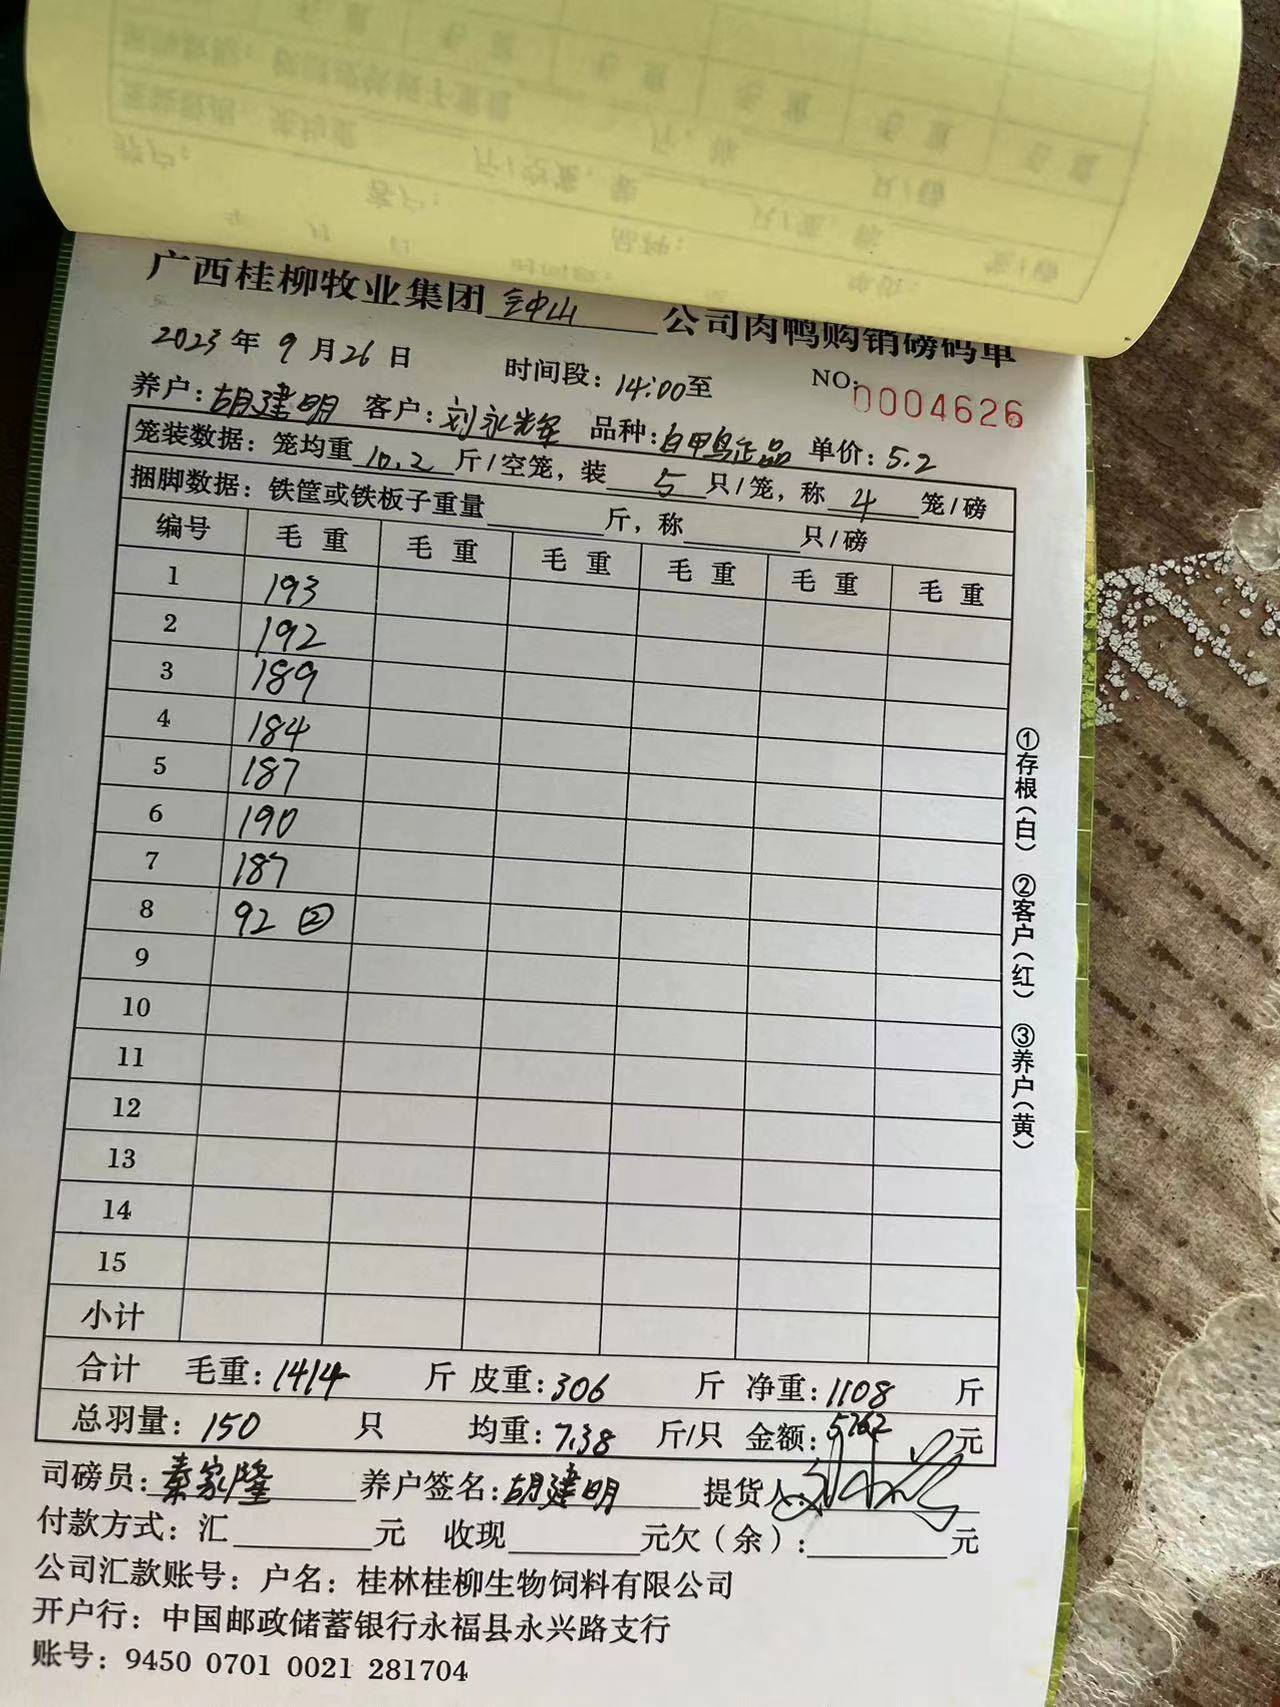 广西桂柳牧业集团 钟山 公司肉鸭购销磅码单
2023年9月26日 时间段：14:00至 NO:0004626
养户：胡建明 客户：刘永先 品种：白甲鸟正品 单价：5.2
笼装数据：笼均重 10.2 斤/空笼，装 5 只/笼，称 4 笼/磅
捆脚数据：铁筐或铁板子重量 斤，称 只/磅
编号 毛重 毛重 毛重 毛重 毛重 毛重
1 193
2 192
3 189
4 184
5 187
6 190
7 187
8 92 ②
9
10
11
12
13
14
15
小计
合计 毛重：1414 斤 皮重：306 斤 净重：1108 斤
总羽量：150 只 均重：7.38 斤/只 金额：5762 元
司磅员：秦家隆 养户签名：胡建明 提货人：
付款方式：汇 元 收现 元欠（余）： 元
公司汇款账号：户名：桂林桂柳生物饲料有限公司
开户行：中国邮政储蓄银行永福县永兴路支行
账号：9450 0701 0021 281704
①存根（白） ②客户（红） ③养户（黄）